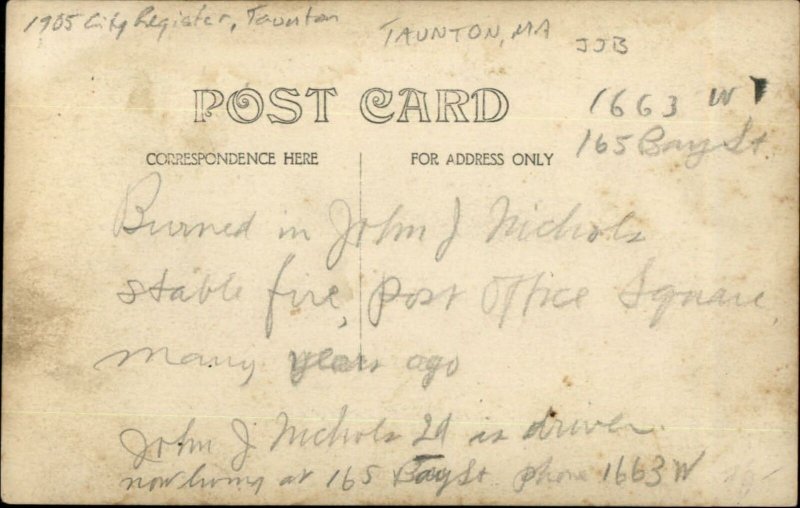 1905 City Register, Taunton
TAUNTON, MA
JJB
POST CARD
1663 W
165 Bay St.
CORRESPONDENCE HERE
FOR ADDRESS ONLY
Burned in John J Nichols
stable fire, Post Office Square,
many years ago
John J Nichols 2d is driver
now living at 165 Bay St phone 1663 W